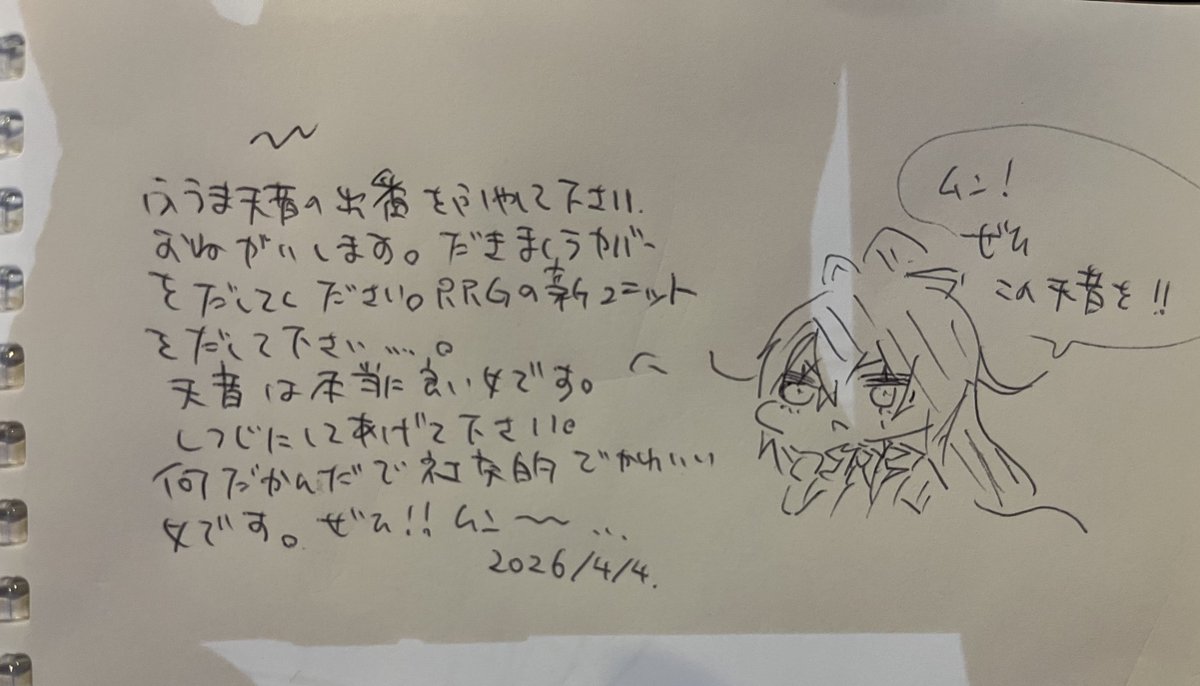 ふうま天音の出番をふやして下さい.
おねがいします。だきまくらカバー
をだしてください。RPGの新ユニット
をだして下さい……。
天音は本当に良い女です。
しつじにしてあげて下さい。
何だかんだで社交的でかわいい
女です。ぜひ!! ムン〜…
2026/4/4.
ムン!
ぜひ
この天音を!!